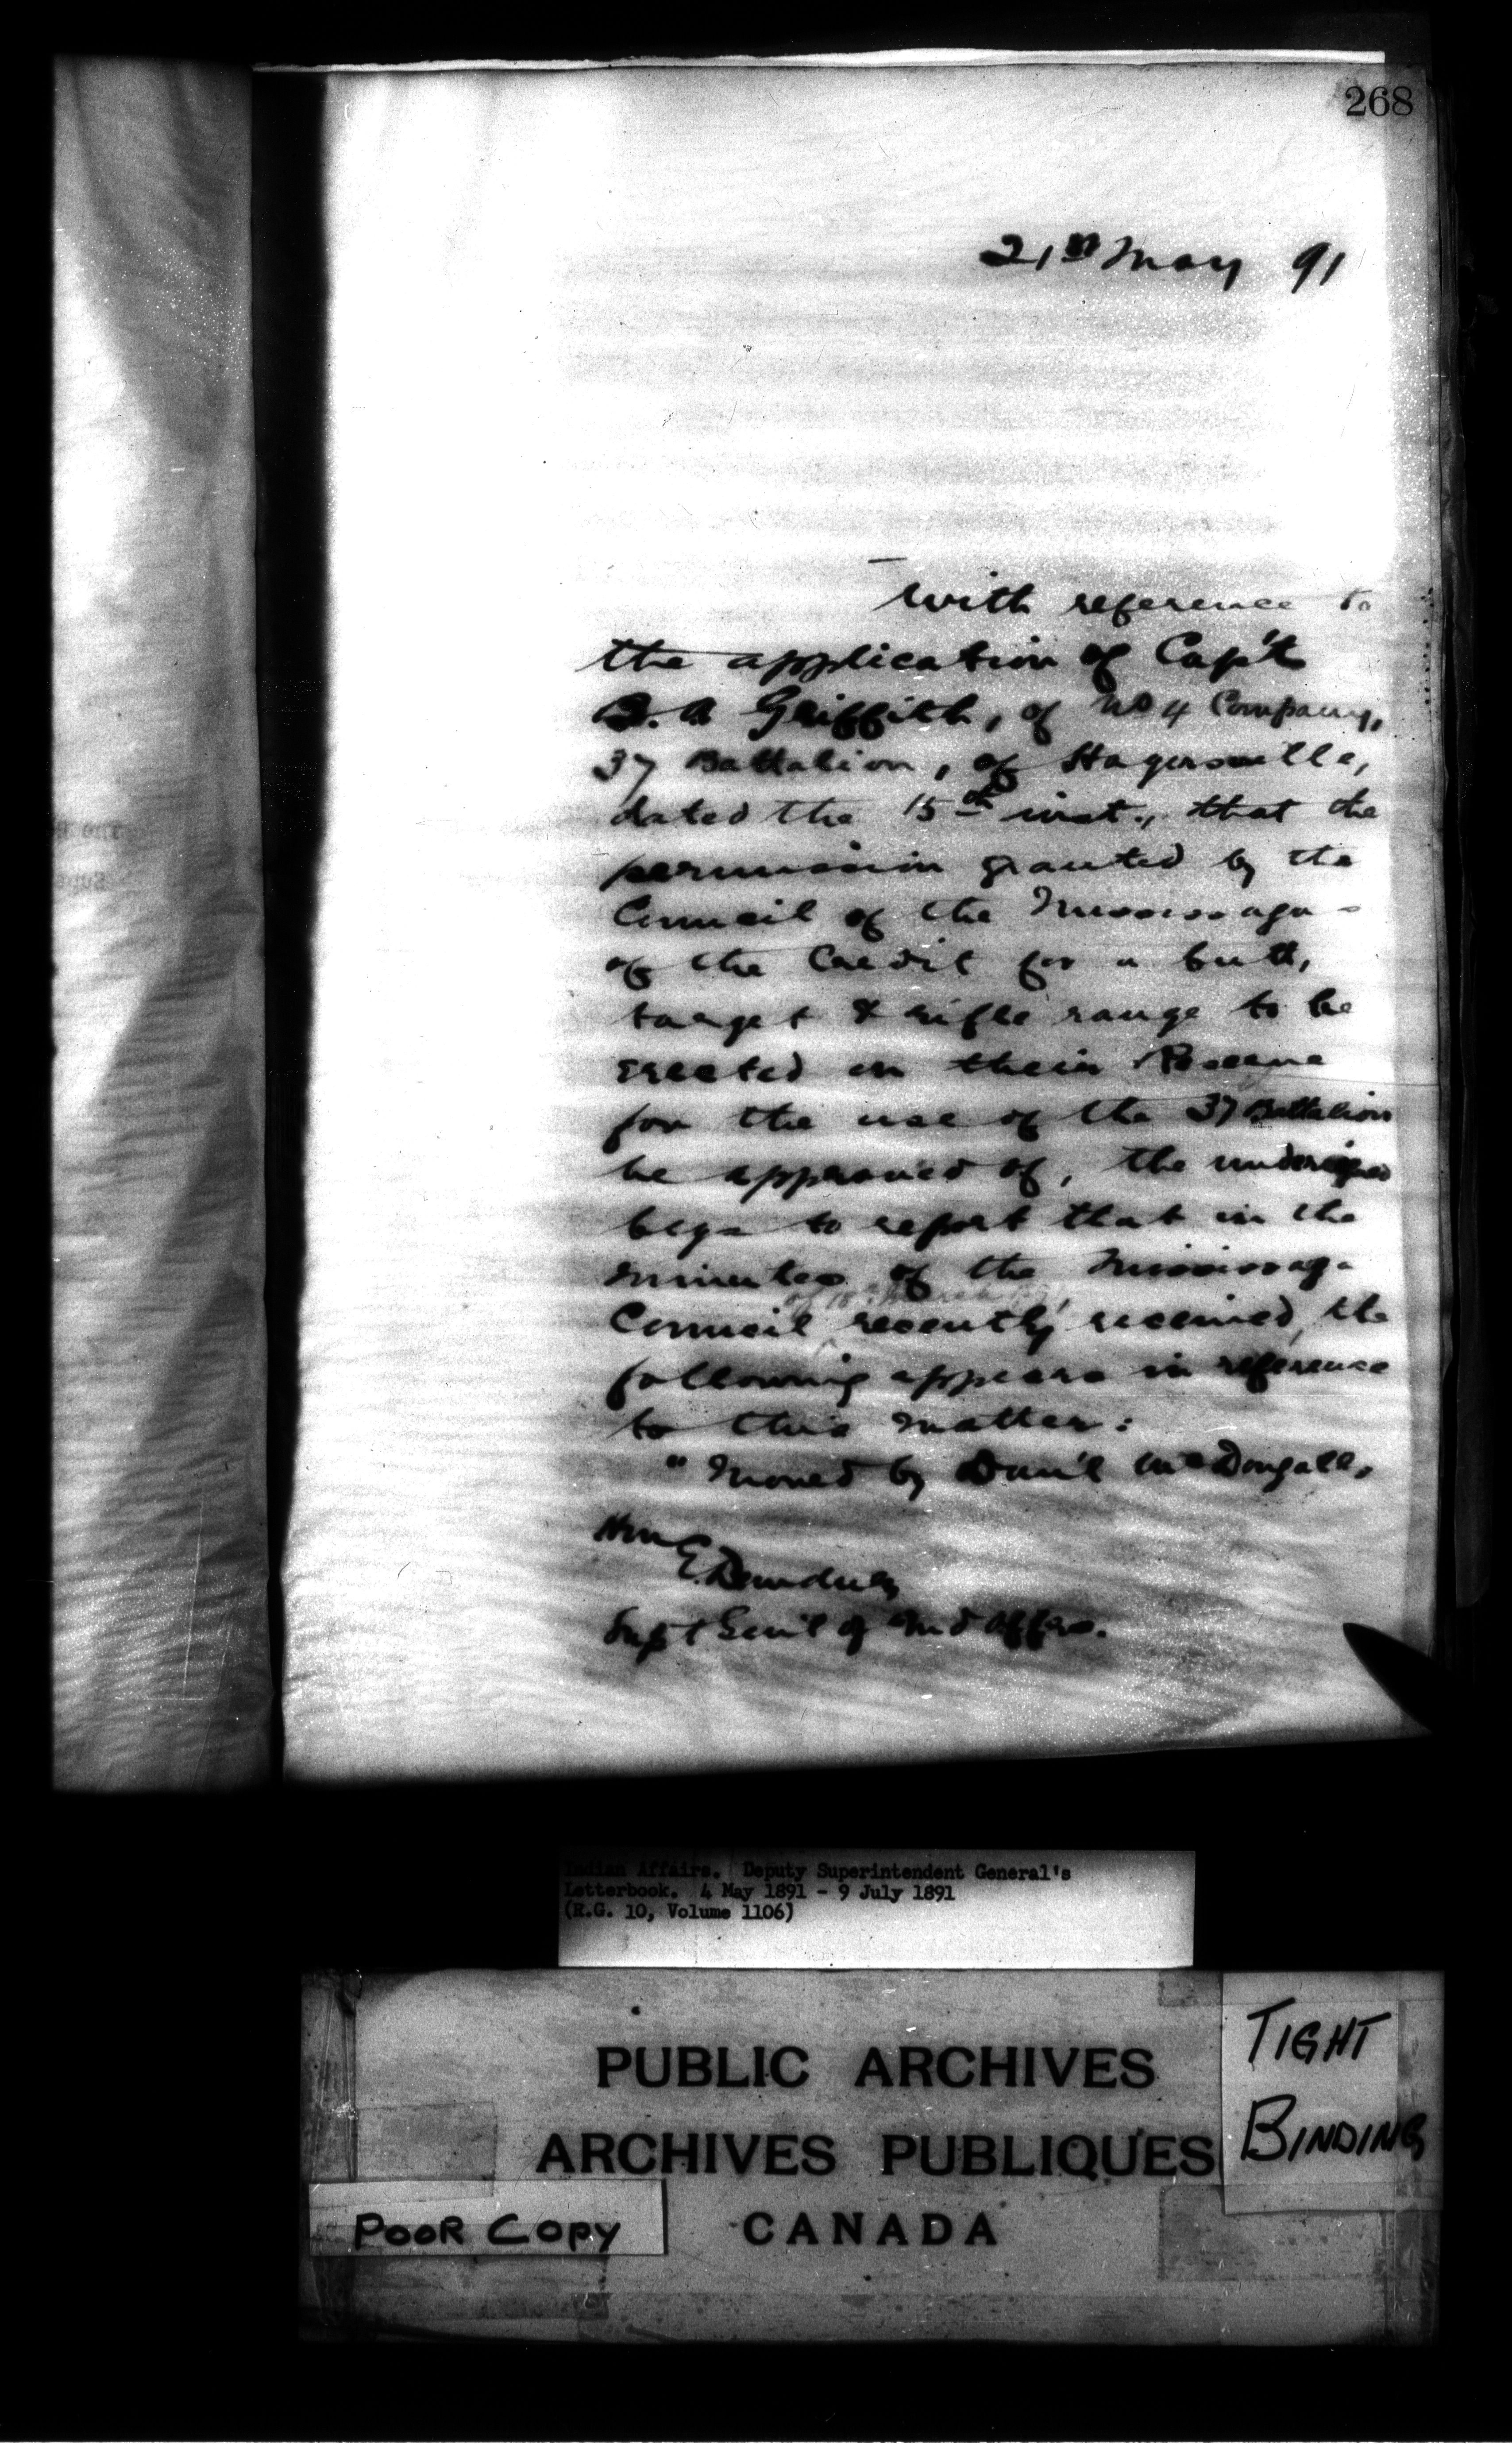 268
21st May 91
With reference to
the application of Cap't
B. A Griffith, of No 4 Company,
37 Battalion, of Hagersville,
dated the 15th inst., that the
permission granted by the
Council of the Mississaguas
of the Credit for a butt,
target & rifle range to be
erected on their Reserve
for the use of the 37 Battalion
be approved of, the undersigned
begs to report that in the
minutes of the Mississagua
of 18th March
Council recently received, the
following appears in reference
to this matter:
"Moved by Dan'l McDougall,
Hon
E. Dewdney
Supt Gen'l of Ind Affrs.
Indian Affairs. Deputy Superintendent General's
Letterbook. 4 May 1891 - 9 July 1891
(R.G. 10, Volume 1106)
PUBLIC ARCHIVES
ARCHIVES PUBLIQUES
CANADA
TIGHT
BINDING
POOR COPY